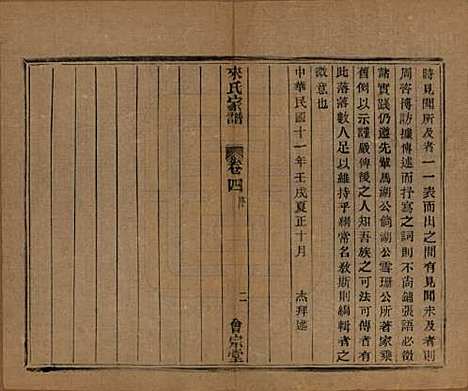 時見聞所及者一一表而出之間有見聞未及者
周咨博訪據傳述而抒寫之詞則不尚鋪張語必徵
諸實踐仍遵先輩馬湖公倘湖公雪珊公所著家乘
舊例以示謹嚴俾後之人知吾族之可法可傳者有
此落落數人足以維持乎綱常名教斯則編輯者之
微意也
中華民國十一年壬戌夏正十月 杰拜述
來氏家譜
卷四
二
會宗堂